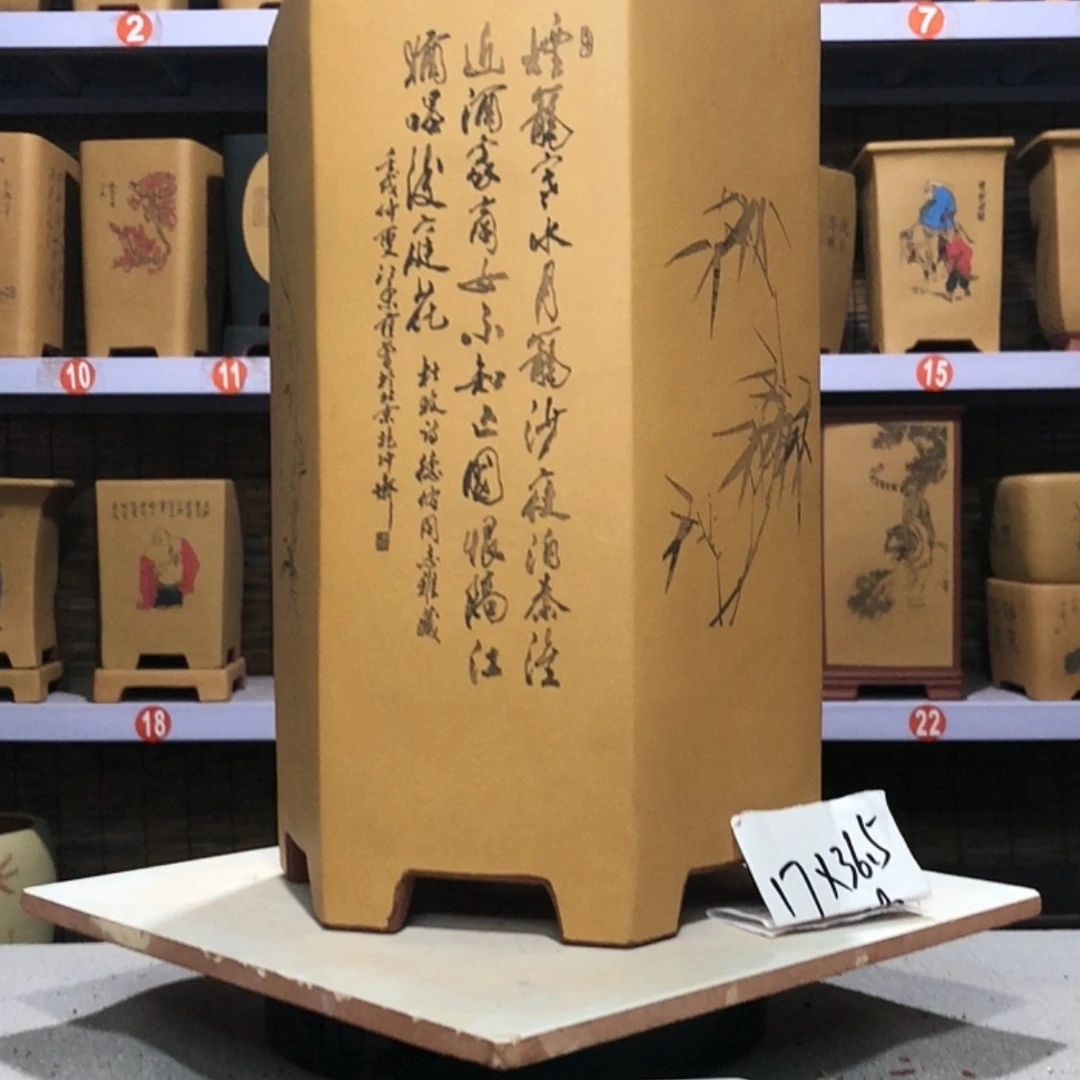 煙籠寒水月籠沙夜泊秦淮
近酒家商女不知亡國恨隔江
猶唱後庭花
杜牧詩德同志雅藏
壬戌仲夏於北京
17X36.5
2
7
10
11
15
18
22